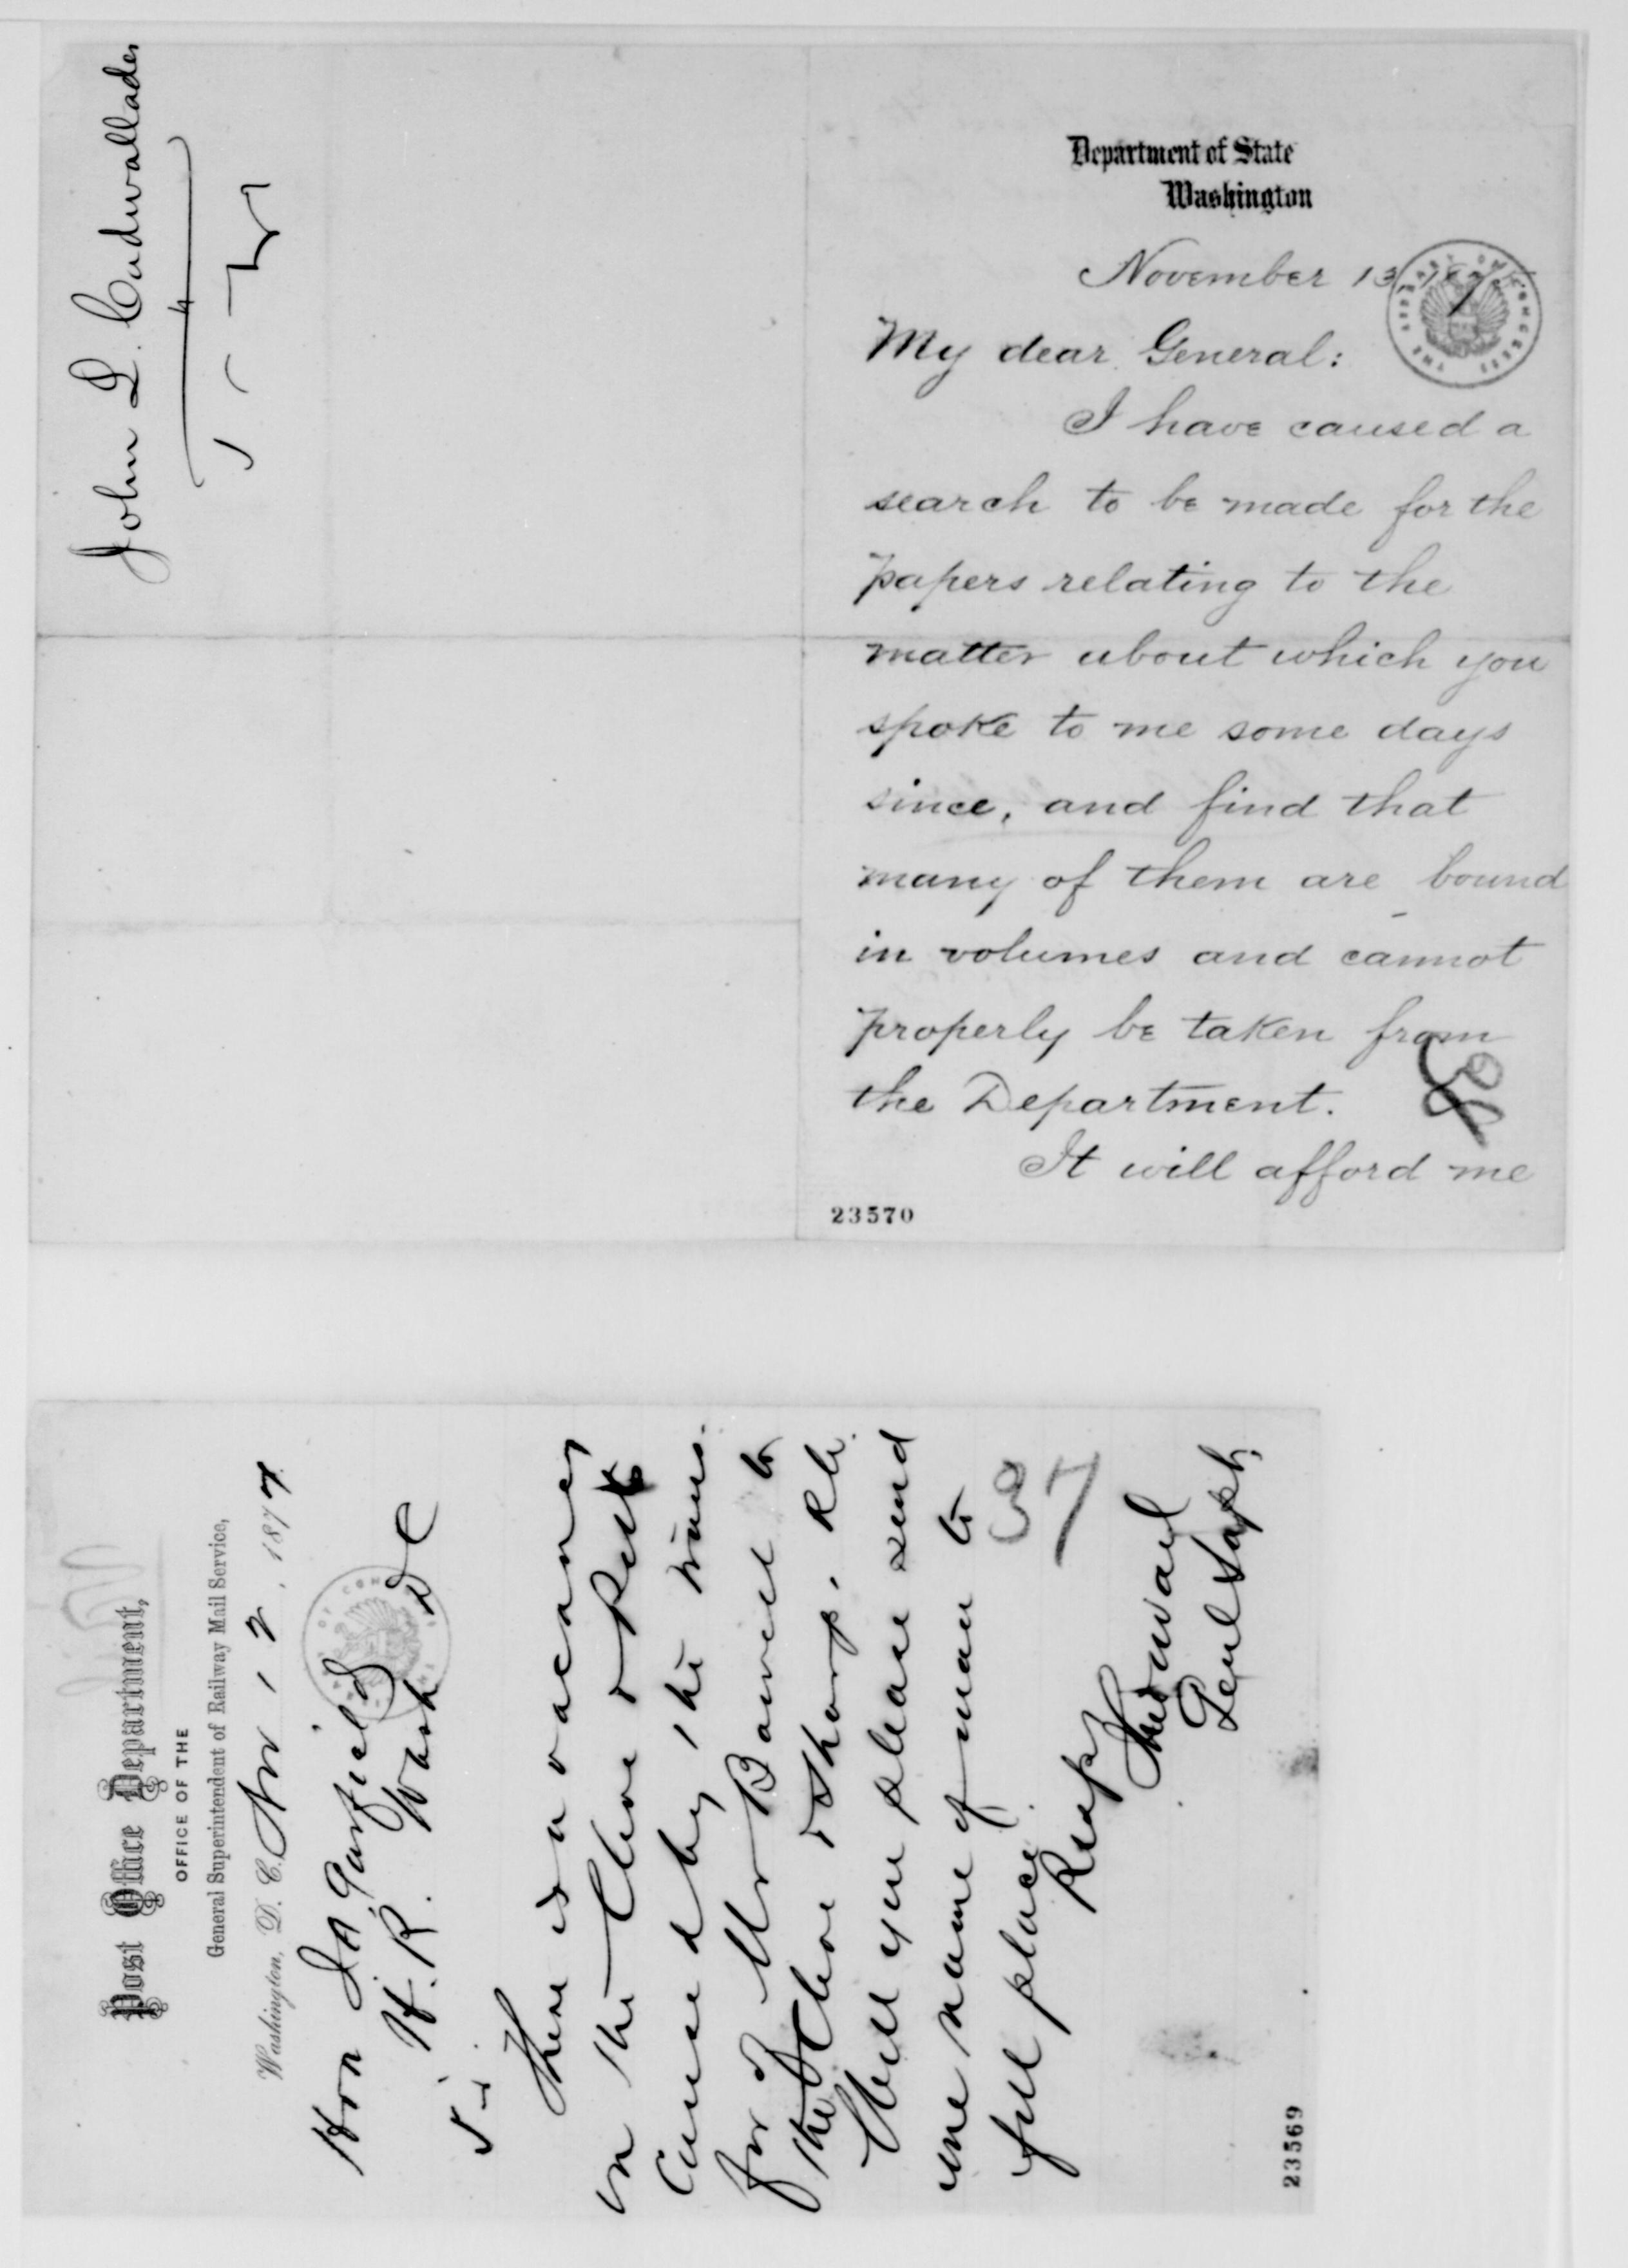 John L. Cadwallader
Department of State
Washington
November 13, 187
THE LIBRARY OF CONGRESS
My dear General:
I have caused a
search to be made for the
papers relating to the
matter about which you
spoke to me some days
since, and find that
many of them are bound
in volumes and cannot
properly be taken from
the Department.
It will afford me
23570
Post Office Department,
OFFICE OF THE
General Superintendent of Railway Mail Service,
Washington, D. C. Nov 12, 1877
Hon J A Garfield
H. R. Wash DC
Sir
There is a vacancy
on the Cleve &
Caused by the trans.
for of Mr Barnett to
the Cleve & Sharp. R Ri.
Will you please send
me name of man to
fill place.
37
Resp
Genl Supt
23569